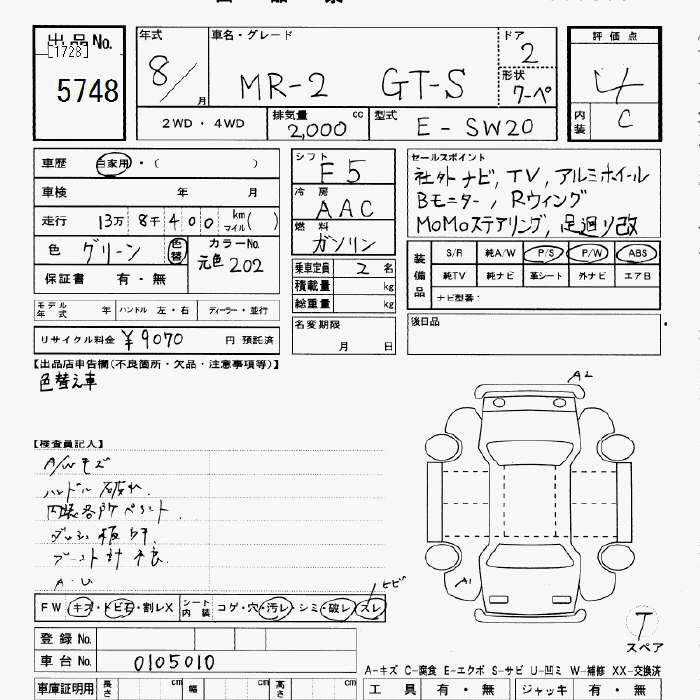 出品No.
[1728]
5748
年式
8/
月
車名・グレード
MR-2 GT-S
ドア
2
形状
クーペ
評価点
4
内装
C
2WD・4WD
排気量
2,000
cc
型式
E-SW20
車歴
自家用・( )
車検 年 月
走行 13万 8千 400 km マイル( )
色 グリーン 色替
カラーNo.
元色202
保証書 有・無
シフト
F5
冷房
AAC
燃料
ガソリン
乗車定員 2 名
積載量 kg
総重量 kg
セールスポイント
社外ナビ, TV, アルミホイール
Bモニター, Rウィング
MOMOステアリング, 足廻り改
装備品
S/R 純A/W P/S P/W ABS
純TV 純ナビ 革シート 外ナビ エアB
ナビ型番:
モデル年式 年 ハンドル 左・右 ディーラー・並行
リサイクル料金 ¥9070 円 預託済
名変期限
月 日
後日品
【出品店申告欄(不良箇所・欠品・注意事項等)】
色替え車
【検査員記入】
A/Wキズ
ハンドル破れ
内装各所ペイント
ブースト計不良
A・U
A2
A1
ヒビ
FW キズ・トビ石・割レX シート内装 コゲ・穴・汚レ・シミ・破レ・スレ
T
スペア
登録No.
車台No. 0105010
A-キズ C-腐食 E-エクボ S-サビ U-凹ミ W-補修 XX-交換済
車庫証明用 長さ cm 幅 cm 高さ cm
工具 有・無 ジャッキ 有・無